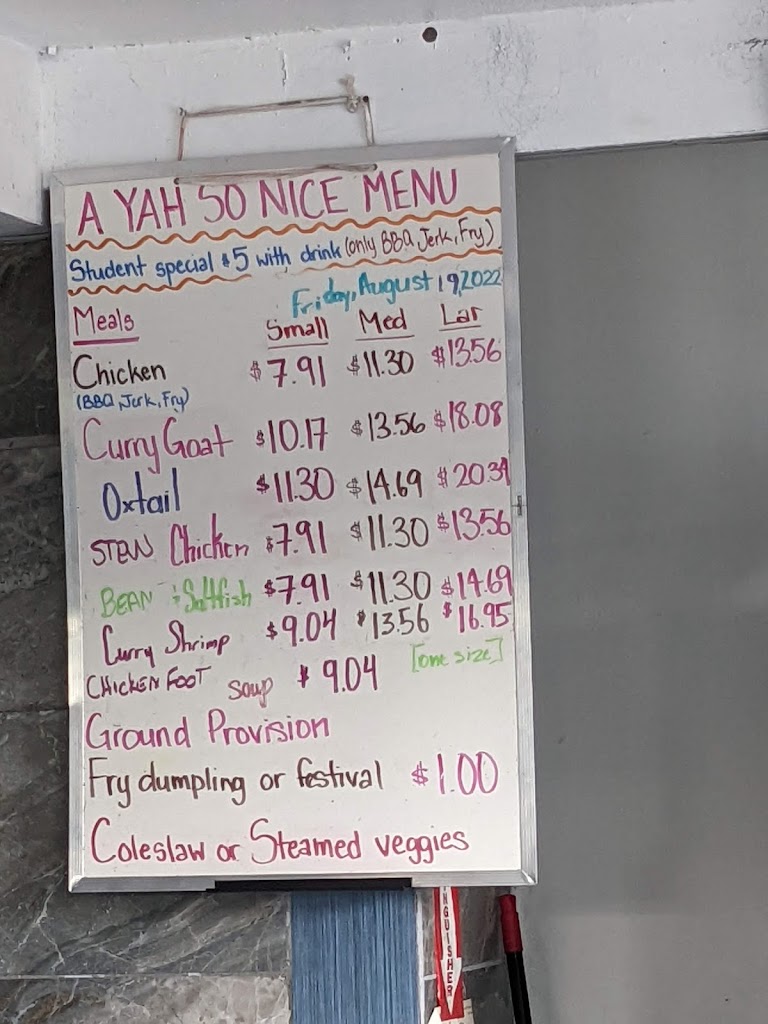 A YAH SO NICE MENU
Student special $5 with drink (only BBQ, Jerk, Fry)
Friday, August 19, 2022
Meals Small Med Lar
Chicken $7.91 $11.30 $13.56
(BBQ, Jerk, Fry)
Curry Goat $10.17 $13.56 $18.08
Oxtail $11.30 $14.69 $20.34
STEW Chicken $7.91 $11.30 $13.56
BEAN & Saltfish $7.91 $11.30 $14.69
Curry Shrimp $9.04 $13.56 $16.95
CHICKEN FOOT soup $9.04 [one size]
Ground Provision
Fry dumpling or festival $1.00
Coleslaw or Steamed veggies
NGUISHER